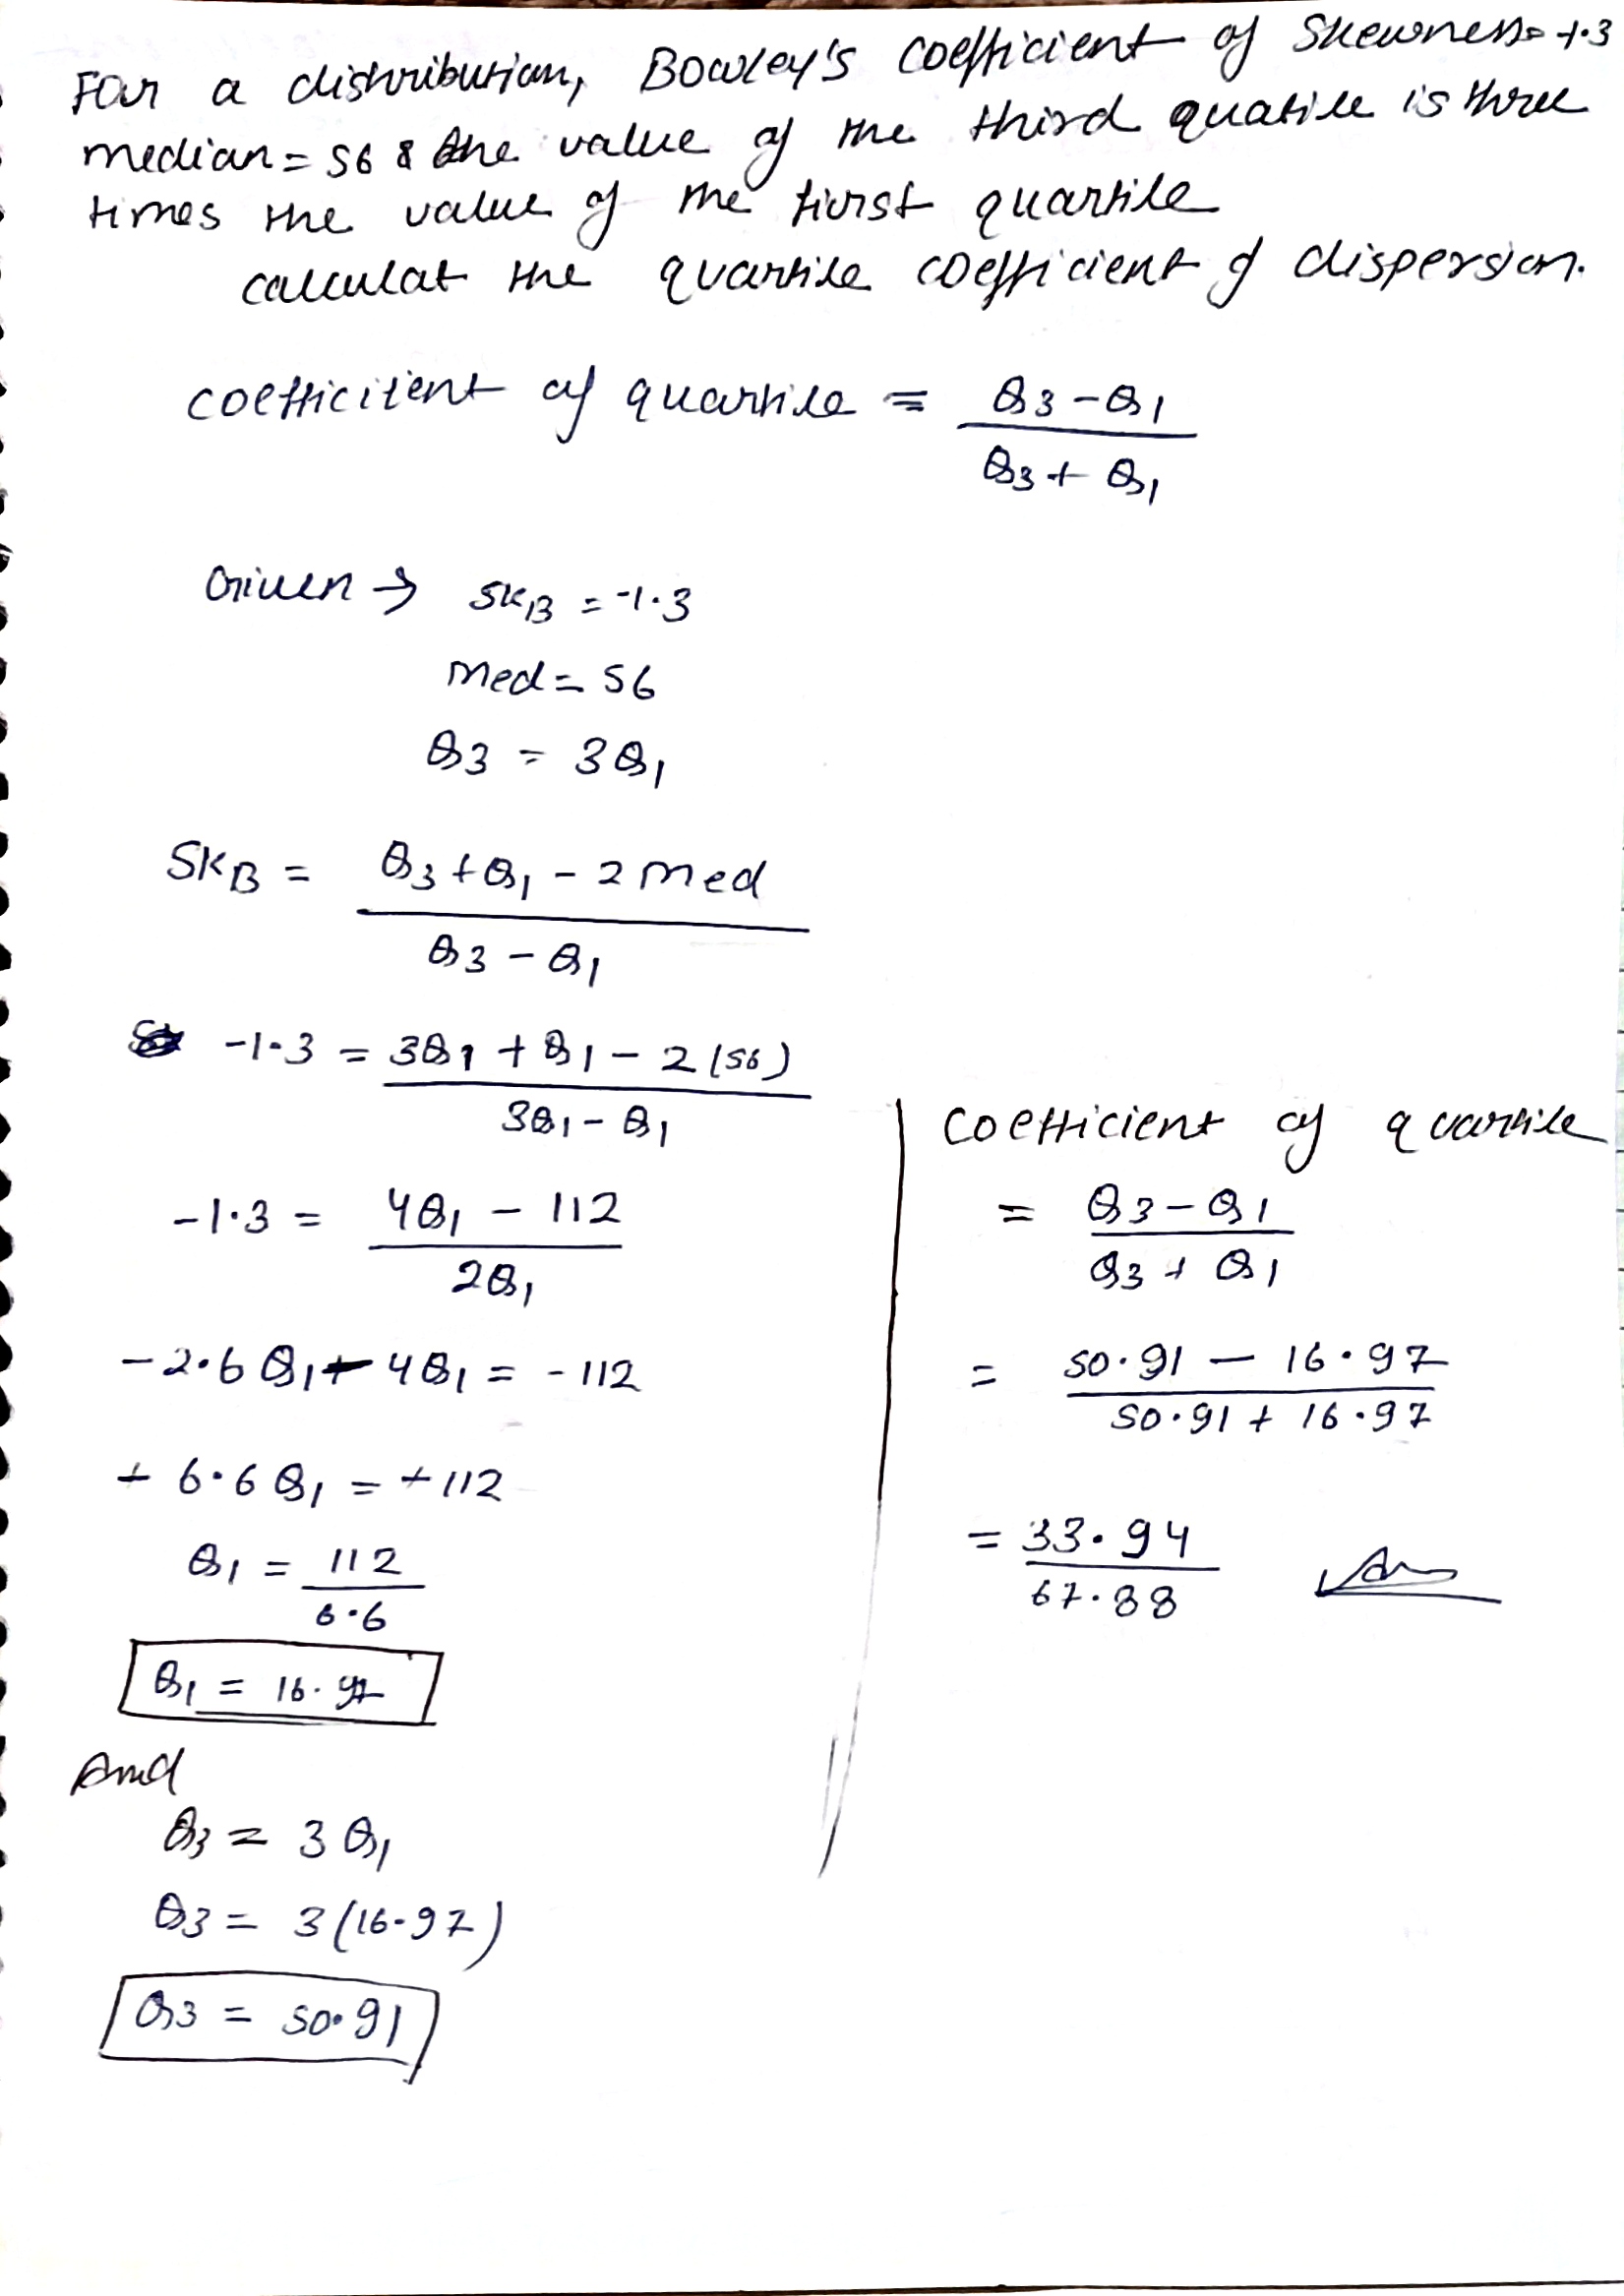 For a distribution, Bowley's coefficient of Skewness = -1.3
median = 56 & the value of the third quatile is three
times the value of the first quartile
calculat the quartile coefficient of dispersion.
coefficitent of quartile = Q3 - Q1
Q3 + Q1
Given → SKB = -1.3
Med = 56
Q3 = 3Q1
SKB = Q3 + Q1 - 2 Med
Q3 - Q1
-1.3 = 3Q1 + Q1 - 2 (56)
3Q1 - Q1
-1.3 = 4Q1 - 112
2Q1
-2.6 Q1 + 4Q1 = -112
+ 6.6 Q1 = +112
Q1 = 112
6.6
Q1 = 16.97
And
Q3 = 3 Q1
Q3 = 3 (16.97)
Q3 = 50.91
coefficient of quartile
= Q3 - Q1
Q3 + Q1
= 50.91 - 16.97
50.91 + 16.97
= 33.94
67.88
Ans